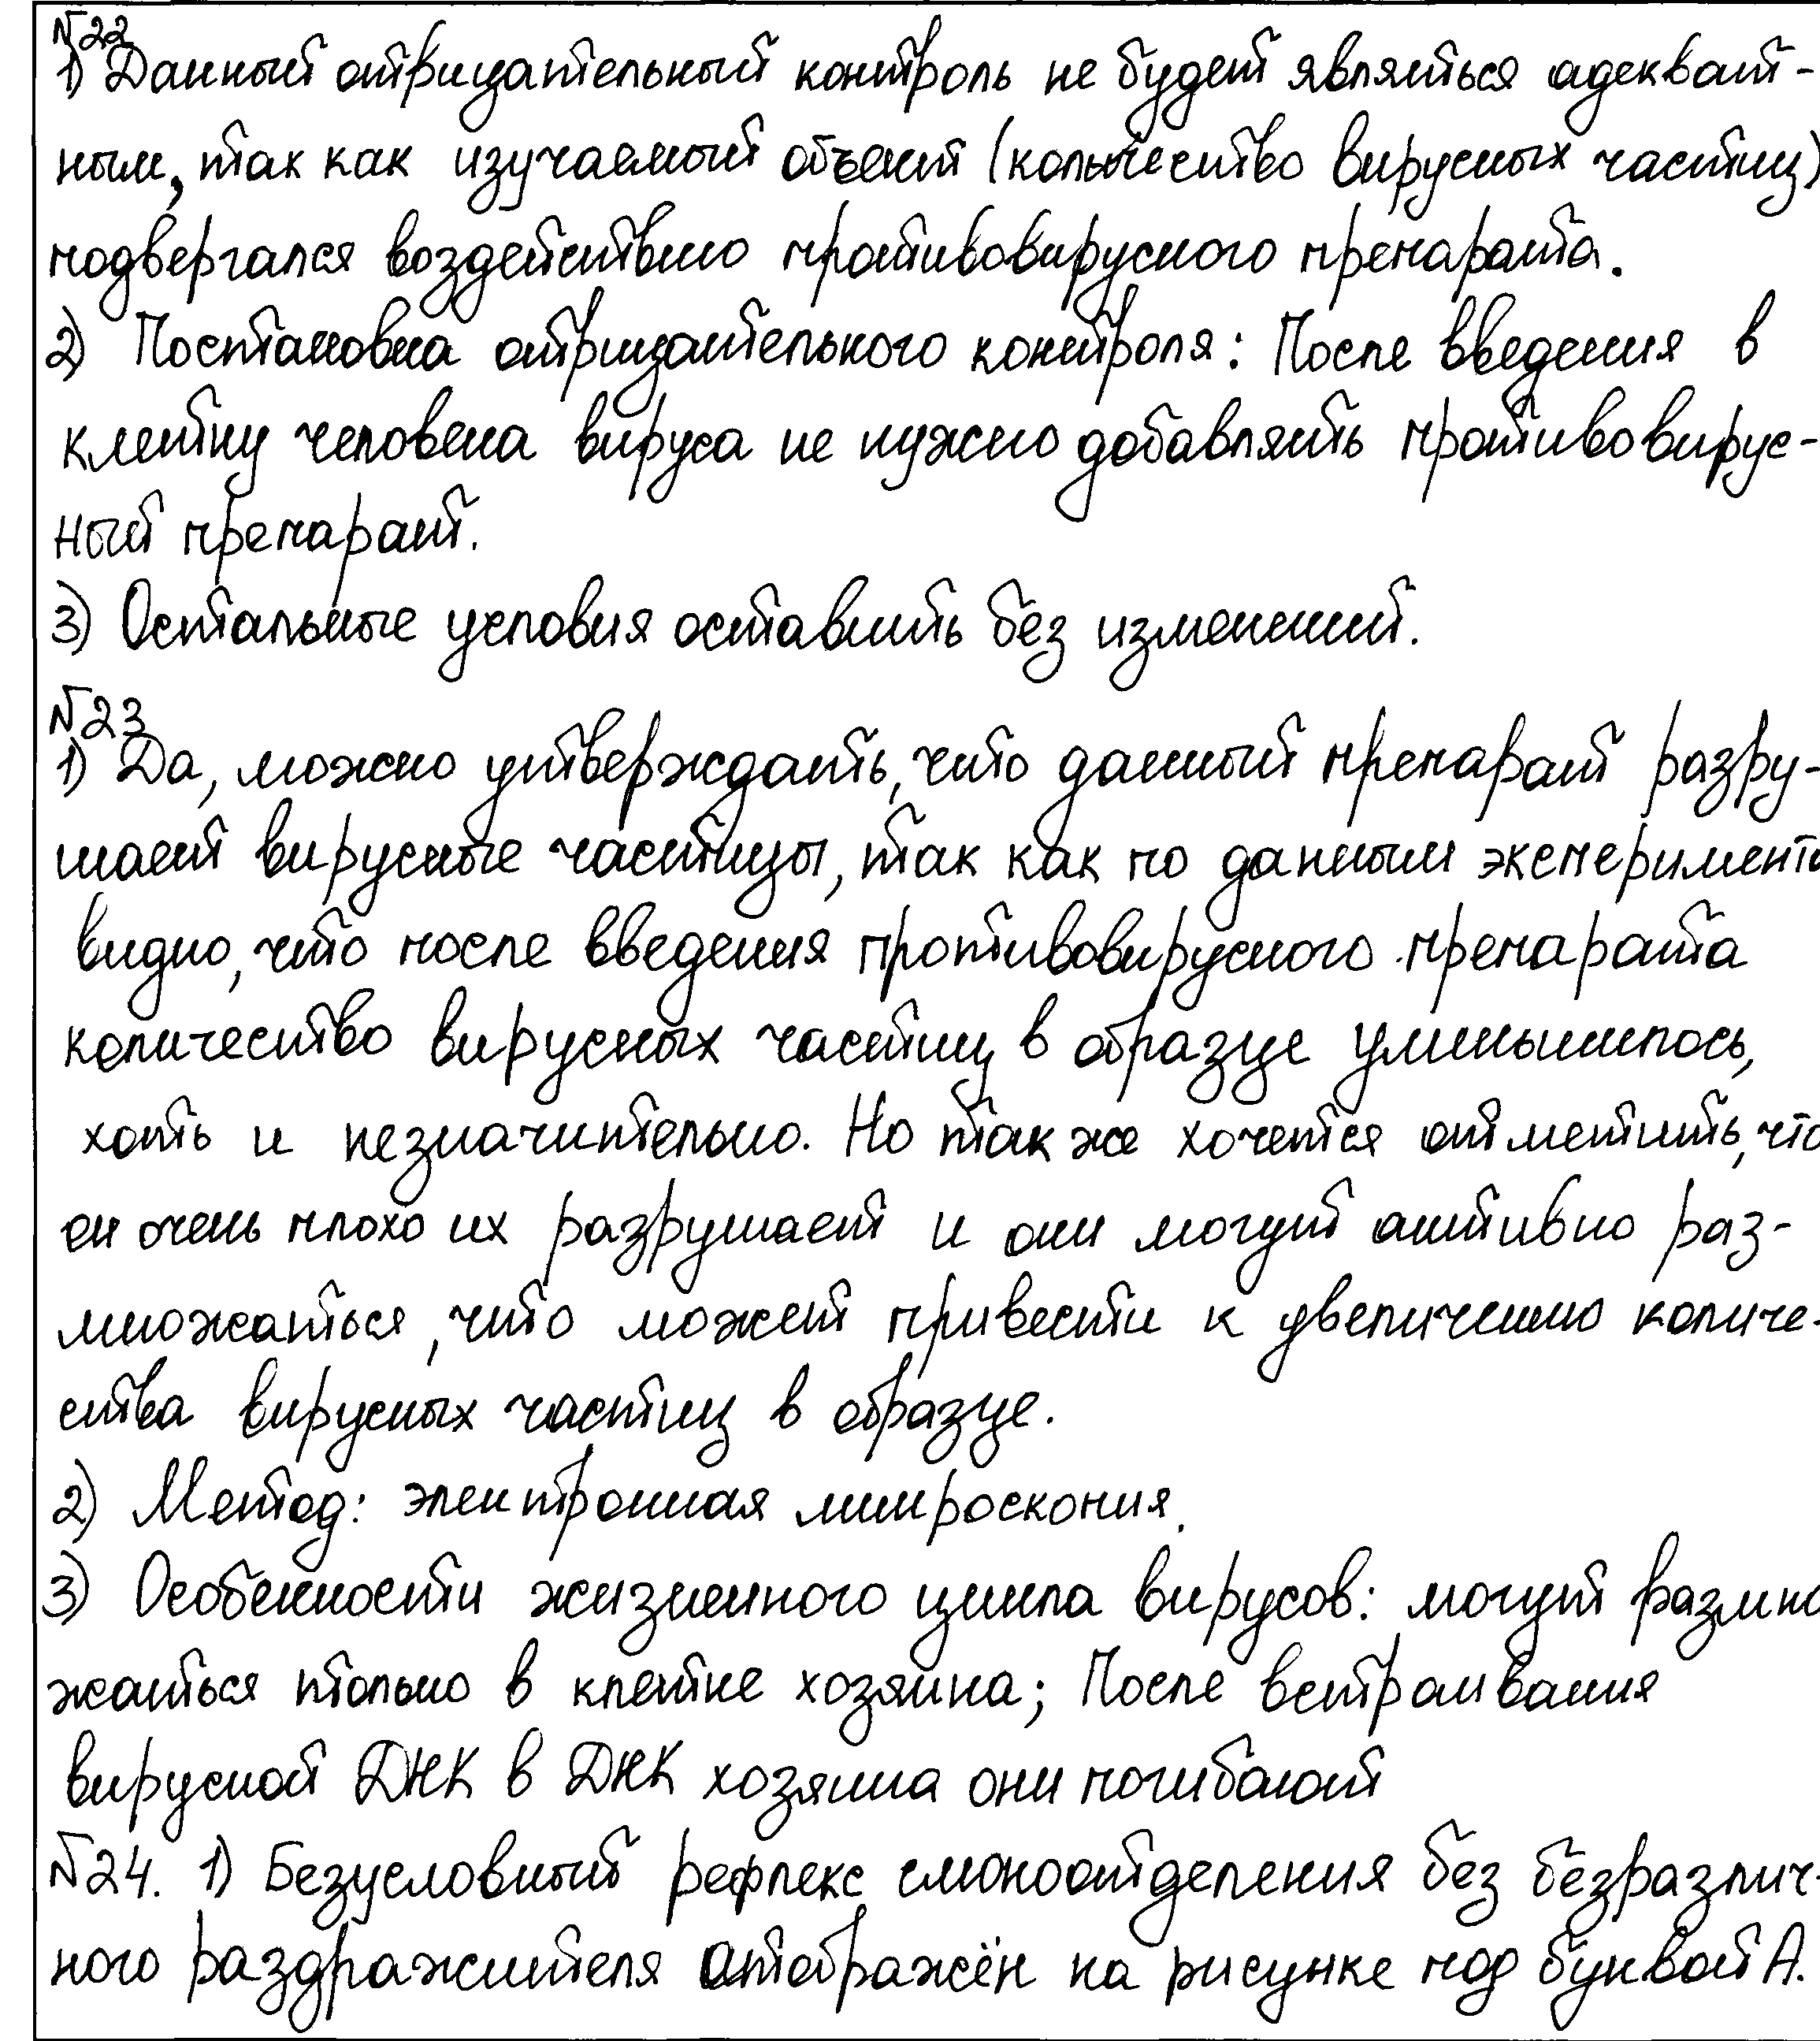 №22
1) Данный отрицательный контроль не будет являться адекват-
ным, так как изучаемый объект (количество вирусных частиц)
подвергался воздействию противовирусного препарата.
2) Постановка отрицательного контроля: После введения в
клетку человека вируса не нужно добавлять противовирус-
ный препарат.
3) Остальные условия оставить без изменений.
№23
1) Да, можно утверждать, что данный препарат разру-
шает вирусные частицы, так как по данным эксперимента
видно, что после введения противовирусного препарата
количество вирусных частиц в образце уменьшилось,
хоть и незначительно. Но так же хочется отметить, что
он очень плохо их разрушает и они могут активно раз-
множаться, что может привести к увеличению количе-
ства вирусных частиц в образце.
2) Метод: электронная микроскопия.
3) Особенности жизненного цикла вирусов: могут размно
жаться только в клетке хозяина; После встраивания
вирусной ДНК в ДНК хозяина они погибают
№24. 1) Безусловный рефлекс слюноотделения без безразлич-
ного раздражителя отображён на рисунке под буквой А.